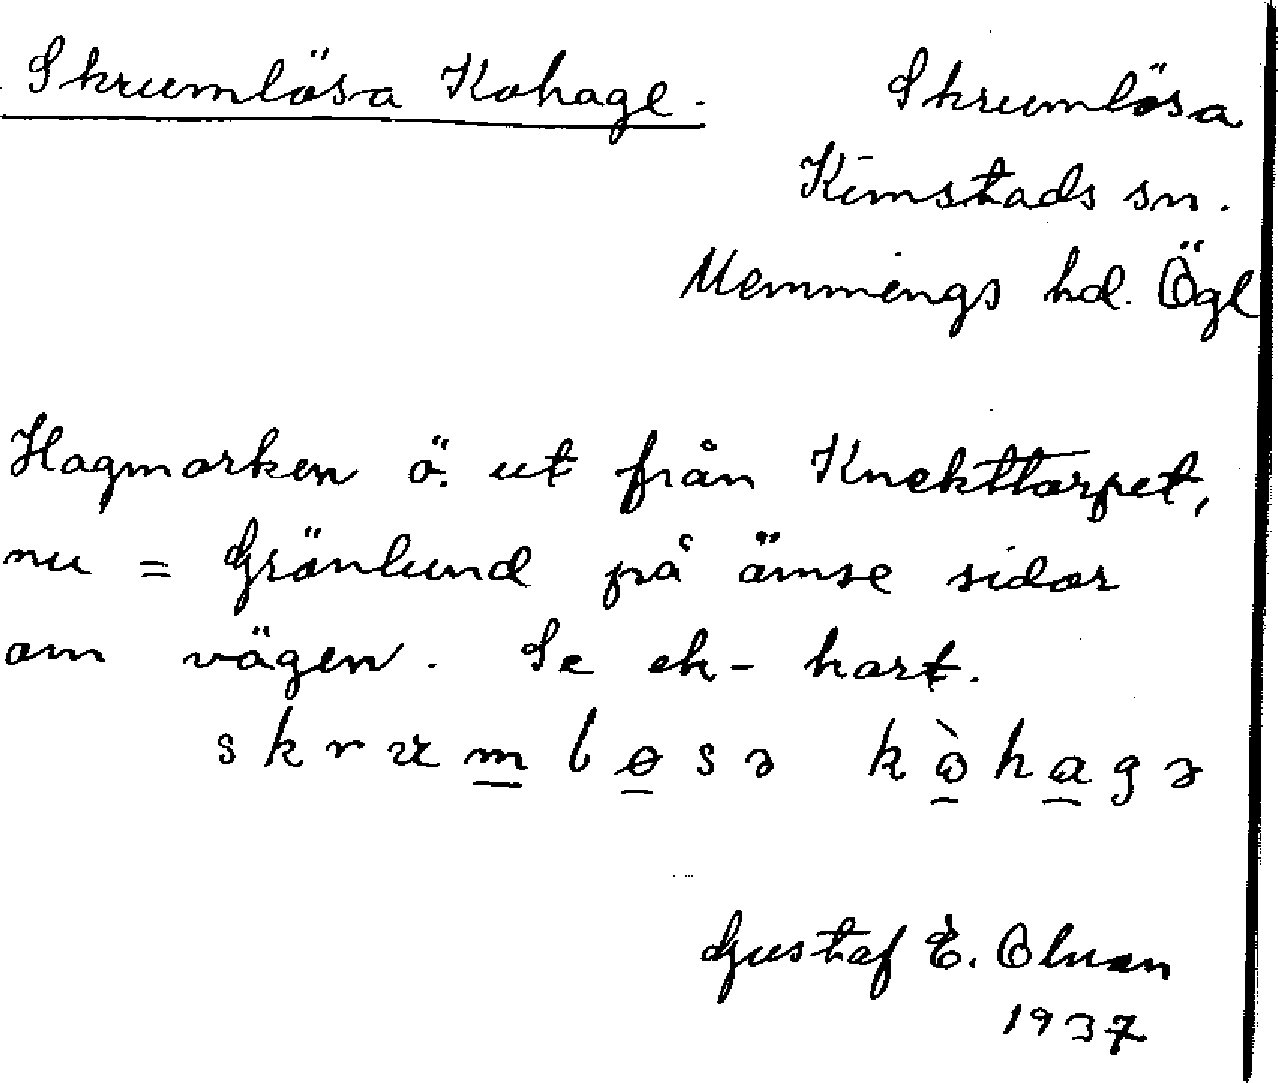 Skrumlösa Kohage. Skrumlösa
Kimstads sn.
Memmings hd. Ögl
Hagmarken ö. ut från Knekttorpet,
nu = Grönlund på ömse sidor
om vägen. Se ek-kart.
skrumløsə kòhagə
Gustaf E. Olson
1937